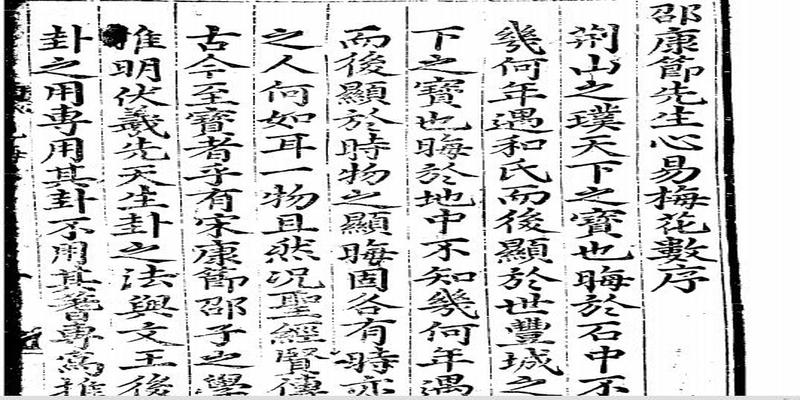 邵康節先生心易梅花數序
荊山之璞天下之寶也晦於石中不
幾何年遇和氏而後顯於世豐城之
下之寶也晦於地中不知幾何年遇
而後顯於時物之顯晦固各有時亦
之人何如耳一物且然況聖經賢傳
古今至寶者乎有宋康節邵子之學
推明伏羲先天生卦之法與文王後
卦之用専用其卦不用其蓍専為推